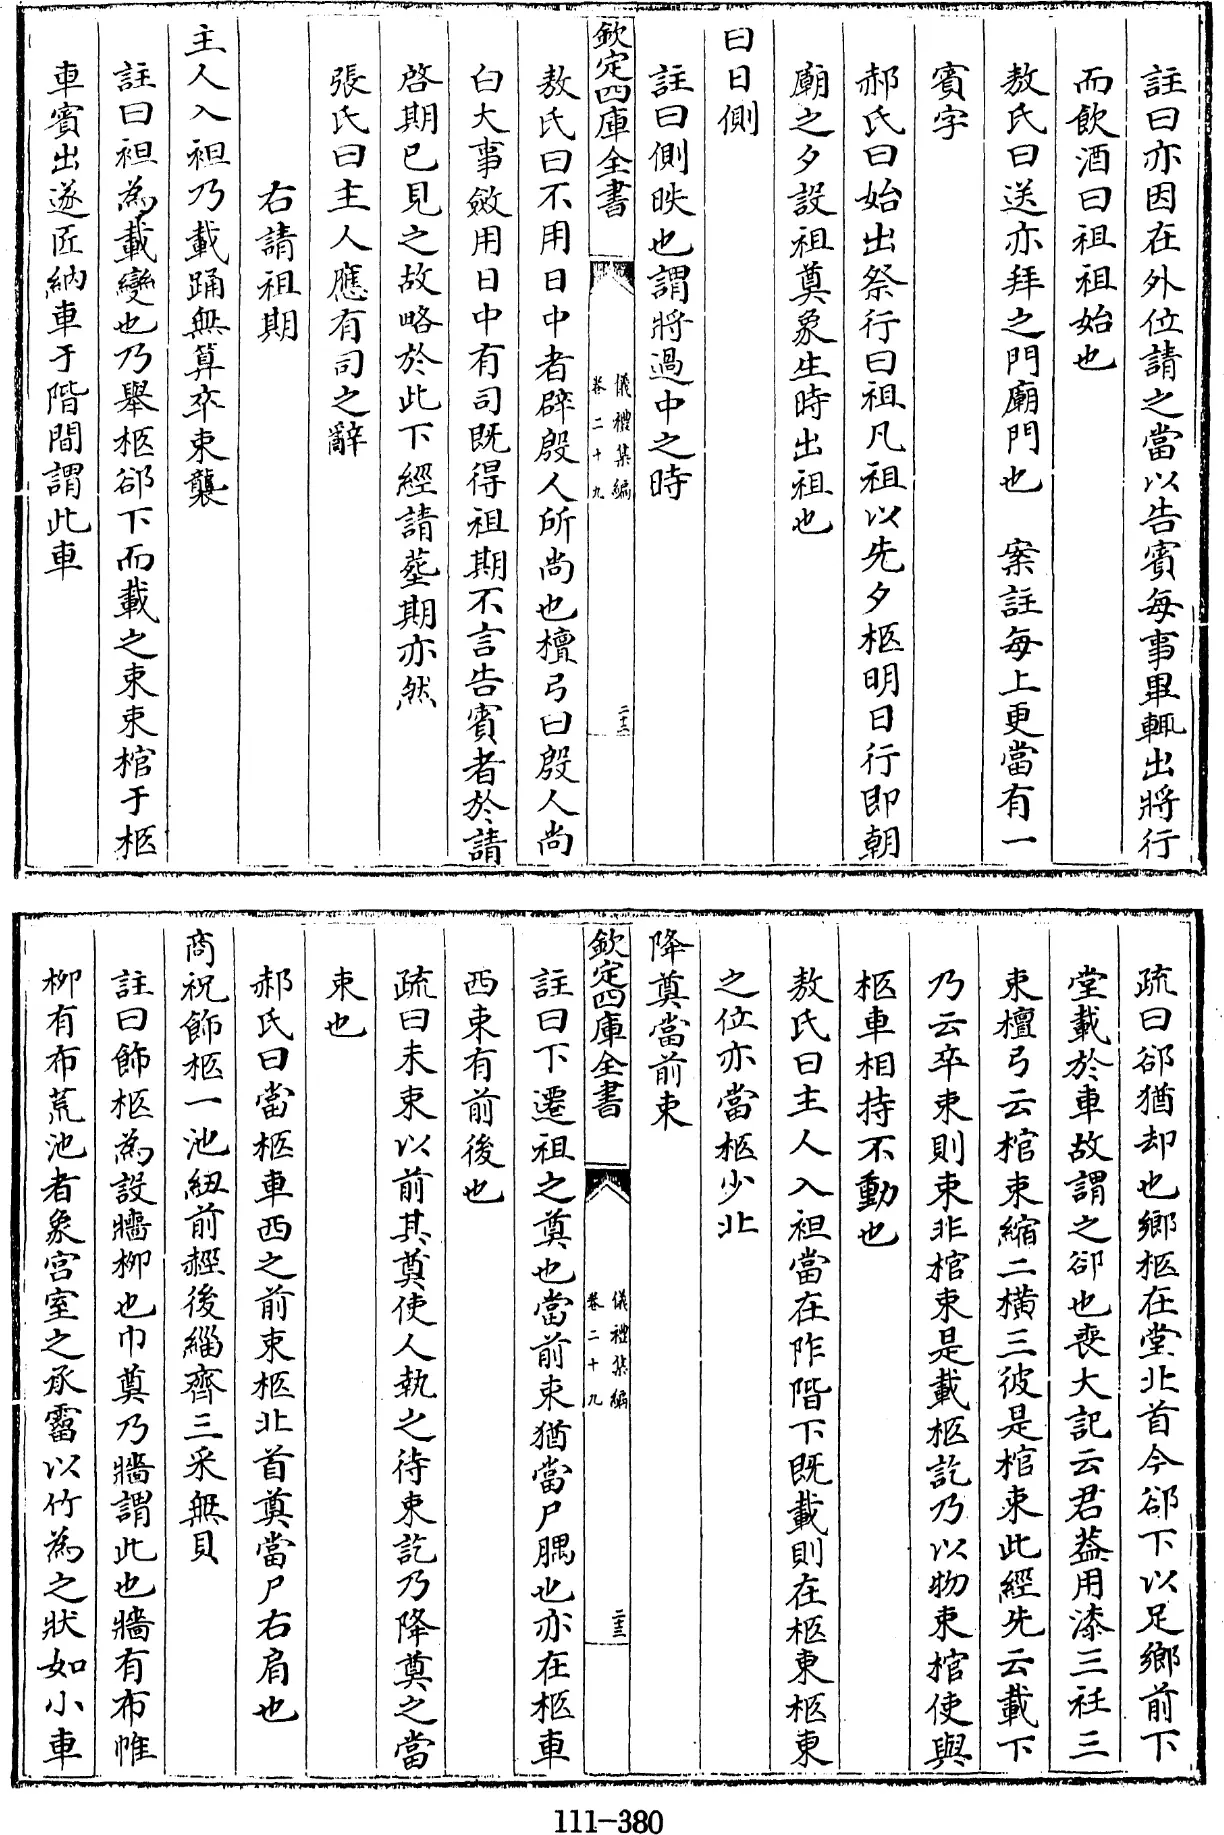 註曰亦因在外位請之當以告賓每事畢輒出將行
而飲酒曰祖祖始也
敖氏曰送亦拜之門廟門也　案註每上更當有一
賓字
郝氏曰始出祭行曰祖凡祖以先夕柩明日行即朝
廟之夕設祖奠象生時出祖也
曰日側
註曰側昳也謂將過中之時
欽定四庫全書
儀禮集編
卷二十九
二十二
敖氏曰不用日中者辟殷人所尚也檀弓曰殷人尚
白大事斂用日中有司既得祖期不言告賓者於請
啓期已見之故略於此下經請塟期亦然
張氏曰主人應有司之辭
右請祖期
主人入袒乃載踊無算卒束襲
註曰袒為載變也乃舉柩郤下而載之束束棺于柩
車賓出遂匠納車于階間謂此車
疏曰郤猶却也鄉柩在堂北首今郤下以足鄉前下
堂載於車故謂之郤也喪大記云君葢用漆三衽三
束檀弓云棺束縮二橫三彼是棺束此經先云載下
乃云卒束則束非棺束是載柩訖乃以物束棺使與
柩車相持不動也
敖氏曰主人入袒當在阼階下既載則在柩東柩東
之位亦當柩少北
降奠當前束
欽定四庫全書
儀禮集編
卷二十九
二十三
註曰下遷祖之奠也當前束猶當尸腢也亦在柩車
西束有前後也
疏曰未束以前其奠使人執之待束訖乃降奠之當
束也
郝氏曰當柩車西之前束柩北首奠當尸右肩也
商祝飾柩一池紐前䞓後緇齊三采無貝
註曰飾柩為設牆柳也巾奠乃牆謂此也牆有布帷
柳有布荒池者象宮室之承霤以竹為之狀如小車
111-380